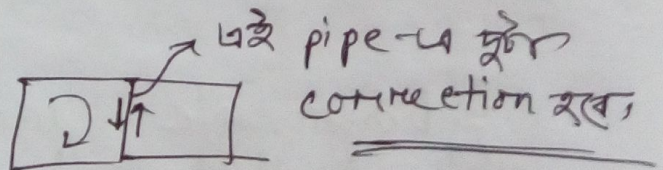 এই pipe-এ দুটো
connection হবে,